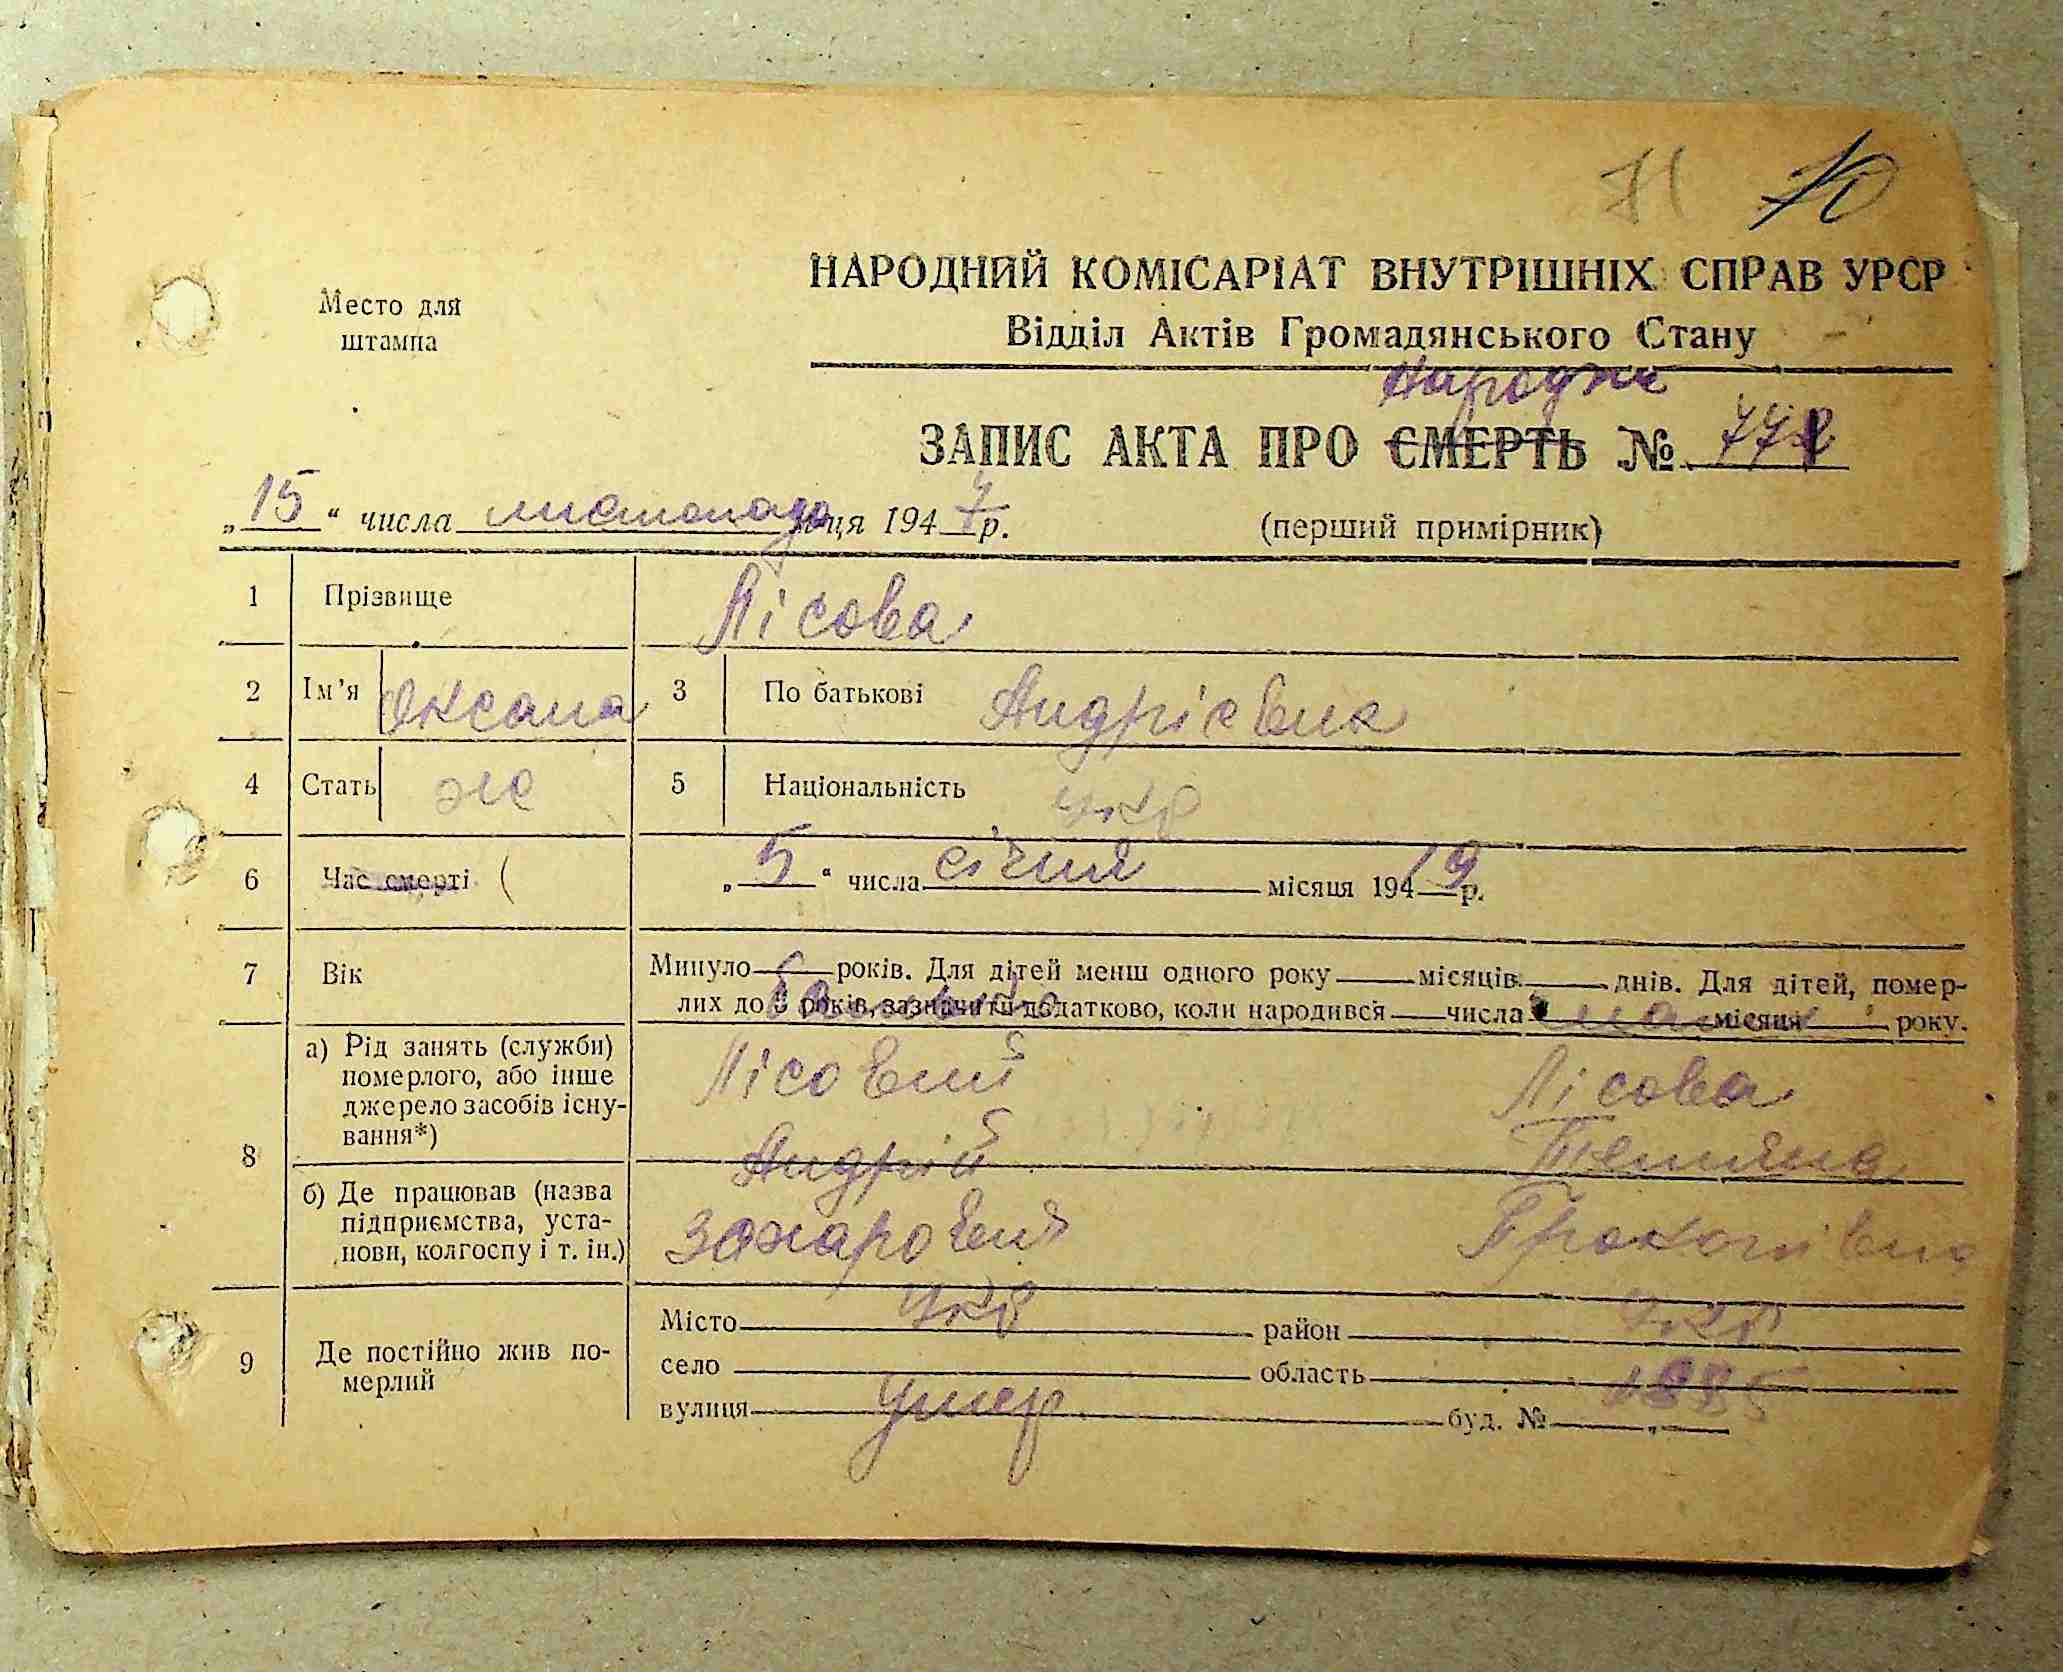 71 70
Место для
штампа
НАРОДНИЙ КОМІСАРІАТ ВНУТРІШНІХ СПРАВ УРСР
Відділ Актів Громадянського Стану
ЗАПИС АКТА ПРО СМЕРТЬ №
„15“ числа листопада місяця 1947 р.
(перший примірник)
1 Прізвище Лісова
2 Ім’я Оксана 3 По батькові Андрієвна
4 Стать ж 5 Національність укр
6 Час смерті ( „5“ числа січня місяця 194 19 р.
7 Вік Минуло років. Для дітей менш одного року місяців днів. Для дітей, помер-
лих до 5 років, зазначити додатково, коли народився числа місяця року.
батько мати
8 а) Рід занять (служби)
померлого, або інше
джерело засобів існу-
вання*)
Лісовий Лісова
Андрій Тетяна
б) Де працював (назва
підприємства, уста-
нови, колгоспу і т. ін.)
Захарович Прокопівна
укр укр
9 Де постійно жив по-
мерлий
Місто район
село область
умер 1885
вулиця буд. №